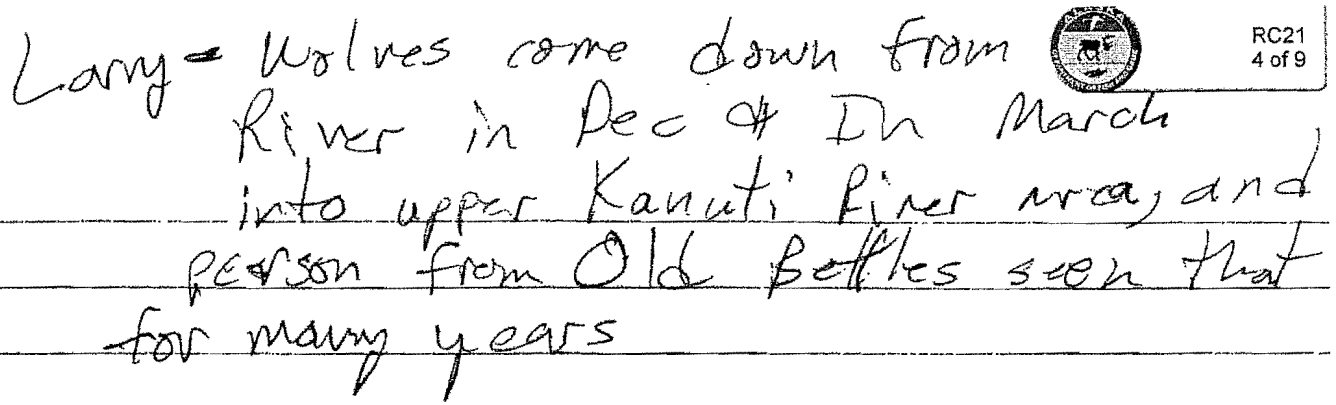 Larry - Wolves come down from
RC21
4 of 9
ALASKA
River in Dec & In March
into upper Kanuti River area, and
person from Old Bettles seen that
for many years